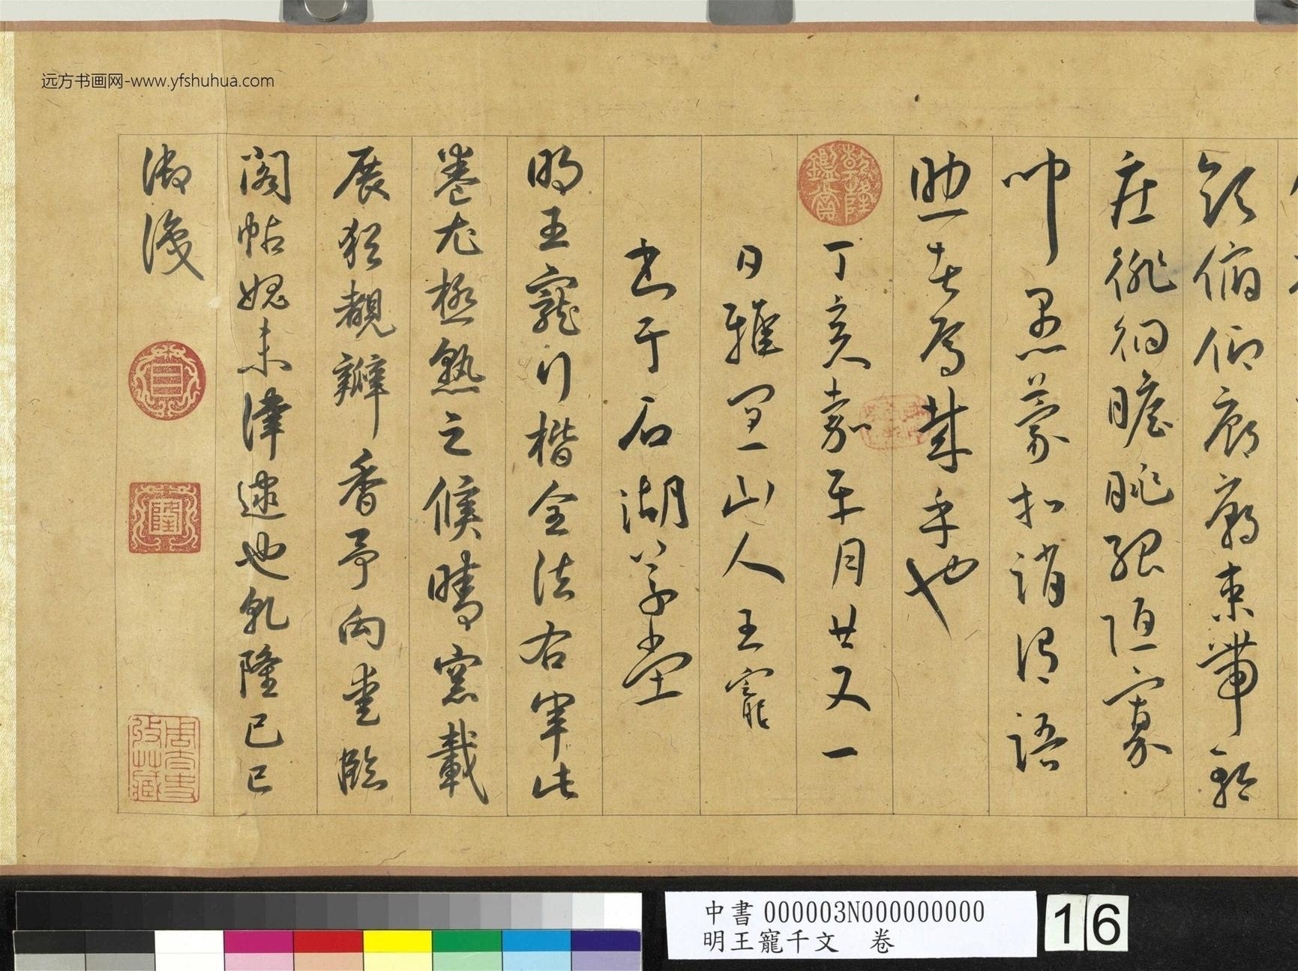 领俯仰廊廟束帶矜
庄徘徊瞻眺孤陋寡
聞愚蒙等誚謂語
助者焉哉乎也
丁亥嘉平月廿又一
日雅宜山人王寵
書于石湖草堂
明王寵行楷全法右軍此
卷尤極熟之候晴窗載
展猶覩瓣香予向臨
閣帖媿未津逮也乾隆己巳
御識
乾隆鑑賞
乾隆
遠方书画网-www.yfshuhua.com
中書 000003N000000000
明王寵千文 卷
16